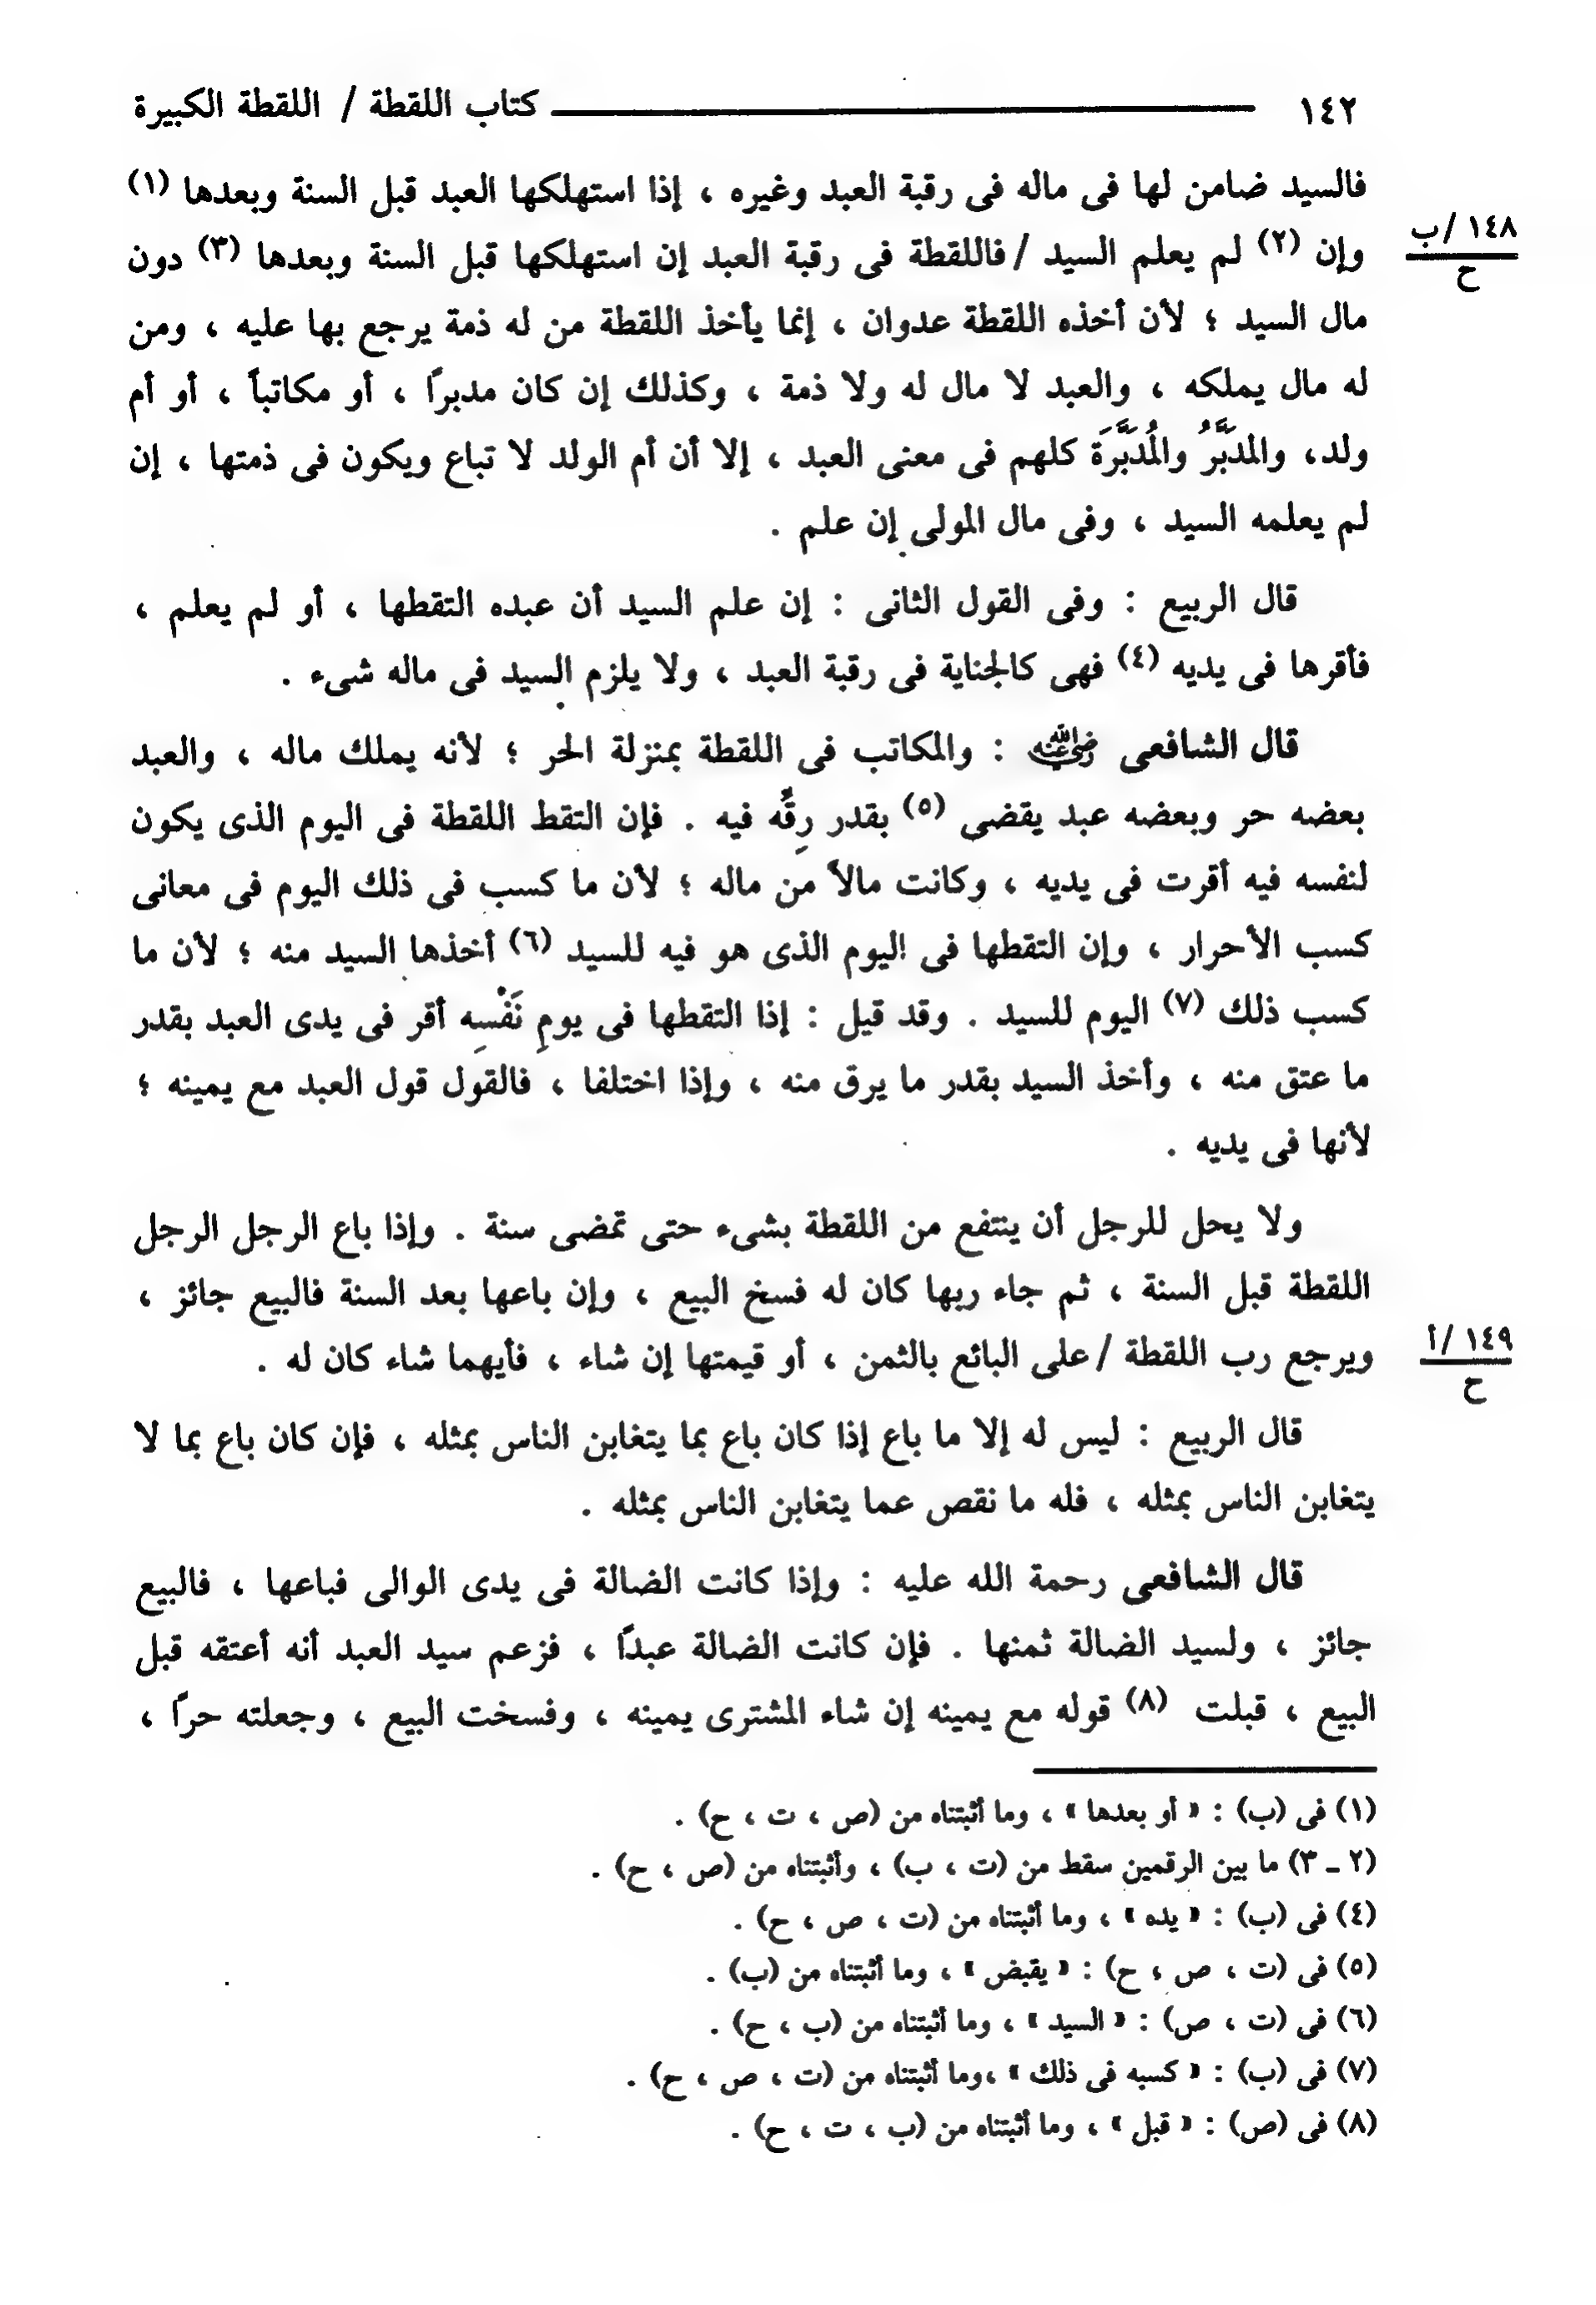 ١٤٢ كتاب اللقطة / اللقطة الكبيرة
فالسيد ضامن لها فى ماله فى رقبة العبد وغيره ، إذا استهلكها العبد قبل السنة وبعدها (١)
١٤٨ /ب
ح
وإن (٢) لم يعلم السيد / فاللقطة فى رقبة العبد إن استهلكها قبل السنة وبعدها (٣) دون
مال السيد ؛ لأن أخذه اللقطة عدوان ، إنما يأخذ اللقطة من له ذمة يرجع بها عليه ، ومن
له مال يملكه ، والعبد لا مال له ولا ذمة ، وكذلك إن كان مدبرًا ، أو مكاتباً ، أو أم
ولد، والمدَبَّرُ والمُدَبَّرَة كلهم فى معنى العبد ، إلا أن أم الولد لا تباع ويكون فى ذمتها ، إن
لم يعلمه السيد ، وفى مال المولى إن علم .
قال الربيع : وفى القول الثانى : إن علم السيد أن عبده التقطها ، أو لم يعلم ،
فأقرها فى يديه (٤) فهى كالجناية فى رقبة العبد ، ولا يلزم السيد فى ماله شىء .
قال الشافعى رضي الله عنه : والمكاتب فى اللقطة بمنزلة الحر ؛ لأنه يملك ماله ، والعبد
بعضه حر وبعضه عبد يقضى (٥) بقدر رِقُّه فيه . فإن التقط اللقطة فى اليوم الذى يكون
لنفسه فيه أقرت فى يديه ، وكانت مالاً من ماله ؛ لأن ما كسب فى ذلك اليوم فى معانى
كسب الأحرار ، وإن التقطها فى اليوم الذى هو فيه للسيد (٦) أخذها السيد منه ؛ لأن ما
كسب ذلك (٧) اليوم للسيد . وقد قيل : إذا التقطها فى يومِ نَفْسِه أقر فى يدى العبد بقدر
ما عتق منه ، وأخذ السيد بقدر ما يرق منه ، وإذا اختلفا ، فالقول قول العبد مع يمينه ؛
لأنها فى يديه .
ولا يحل للرجل أن ينتفع من اللقطة بشىء حتى تمضى سنة . وإذا باع الرجل الرجل
اللقطة قبل السنة ، ثم جاء ربها كان له فسخ البيع ، وإن باعها بعد السنة فالبيع جائز ،
١٤٩ /أ
ح
ويرجع رب اللقطة / على البائع بالثمن ، أو قيمتها إن شاء ، فأيهما شاء كان له .
قال الربيع : ليس له إلا ما باع إذا كان باع بما يتغابن الناس بمثله ، فإن كان باع بما لا
يتغابن الناس بمثله ، فله ما نقص عما يتغابن الناس بمثله .
قال الشافعى رحمة الله عليه : وإذا كانت الضالة فى يدى الوالى فباعها ، فالبيع
جائز ، ولسيد الضالة ثمنها . فإن كانت الضالة عبدًا ، فزعم سيد العبد أنه أعتقه قبل
البيع ، قبلت (٨) قوله مع يمينه إن شاء المشترى يمينه ، وفسخت البيع ، وجعلته حرًا ،
(١) فى (ب) : « أو بعدها » ، وما أثبتناه من (ص ، ت ، ح) .
(٢ ـ ٣) ما بين الرقمين سقط من (ت ، ب) ، وأثبتناه من (ص ، ح) .
(٤) فى (ب) : « يده » ، وما أثبتناه من (ت ، ص ، ح) .
(٥) فى (ت ، ص ، ح) : « يقبض » ، وما أثبتناه من (ب) .
(٦) فى (ت ، ص) : « السيد » ، وما أثبتناه من (ب ، ح) .
(٧) فى (ب) : « كسبه فى ذلك » ،وما أثبتناه من (ت ، ص ، ح) .
(٨) فى (ص) : « قبل » ، وما أثبتناه من (ب ، ت ، ح) .